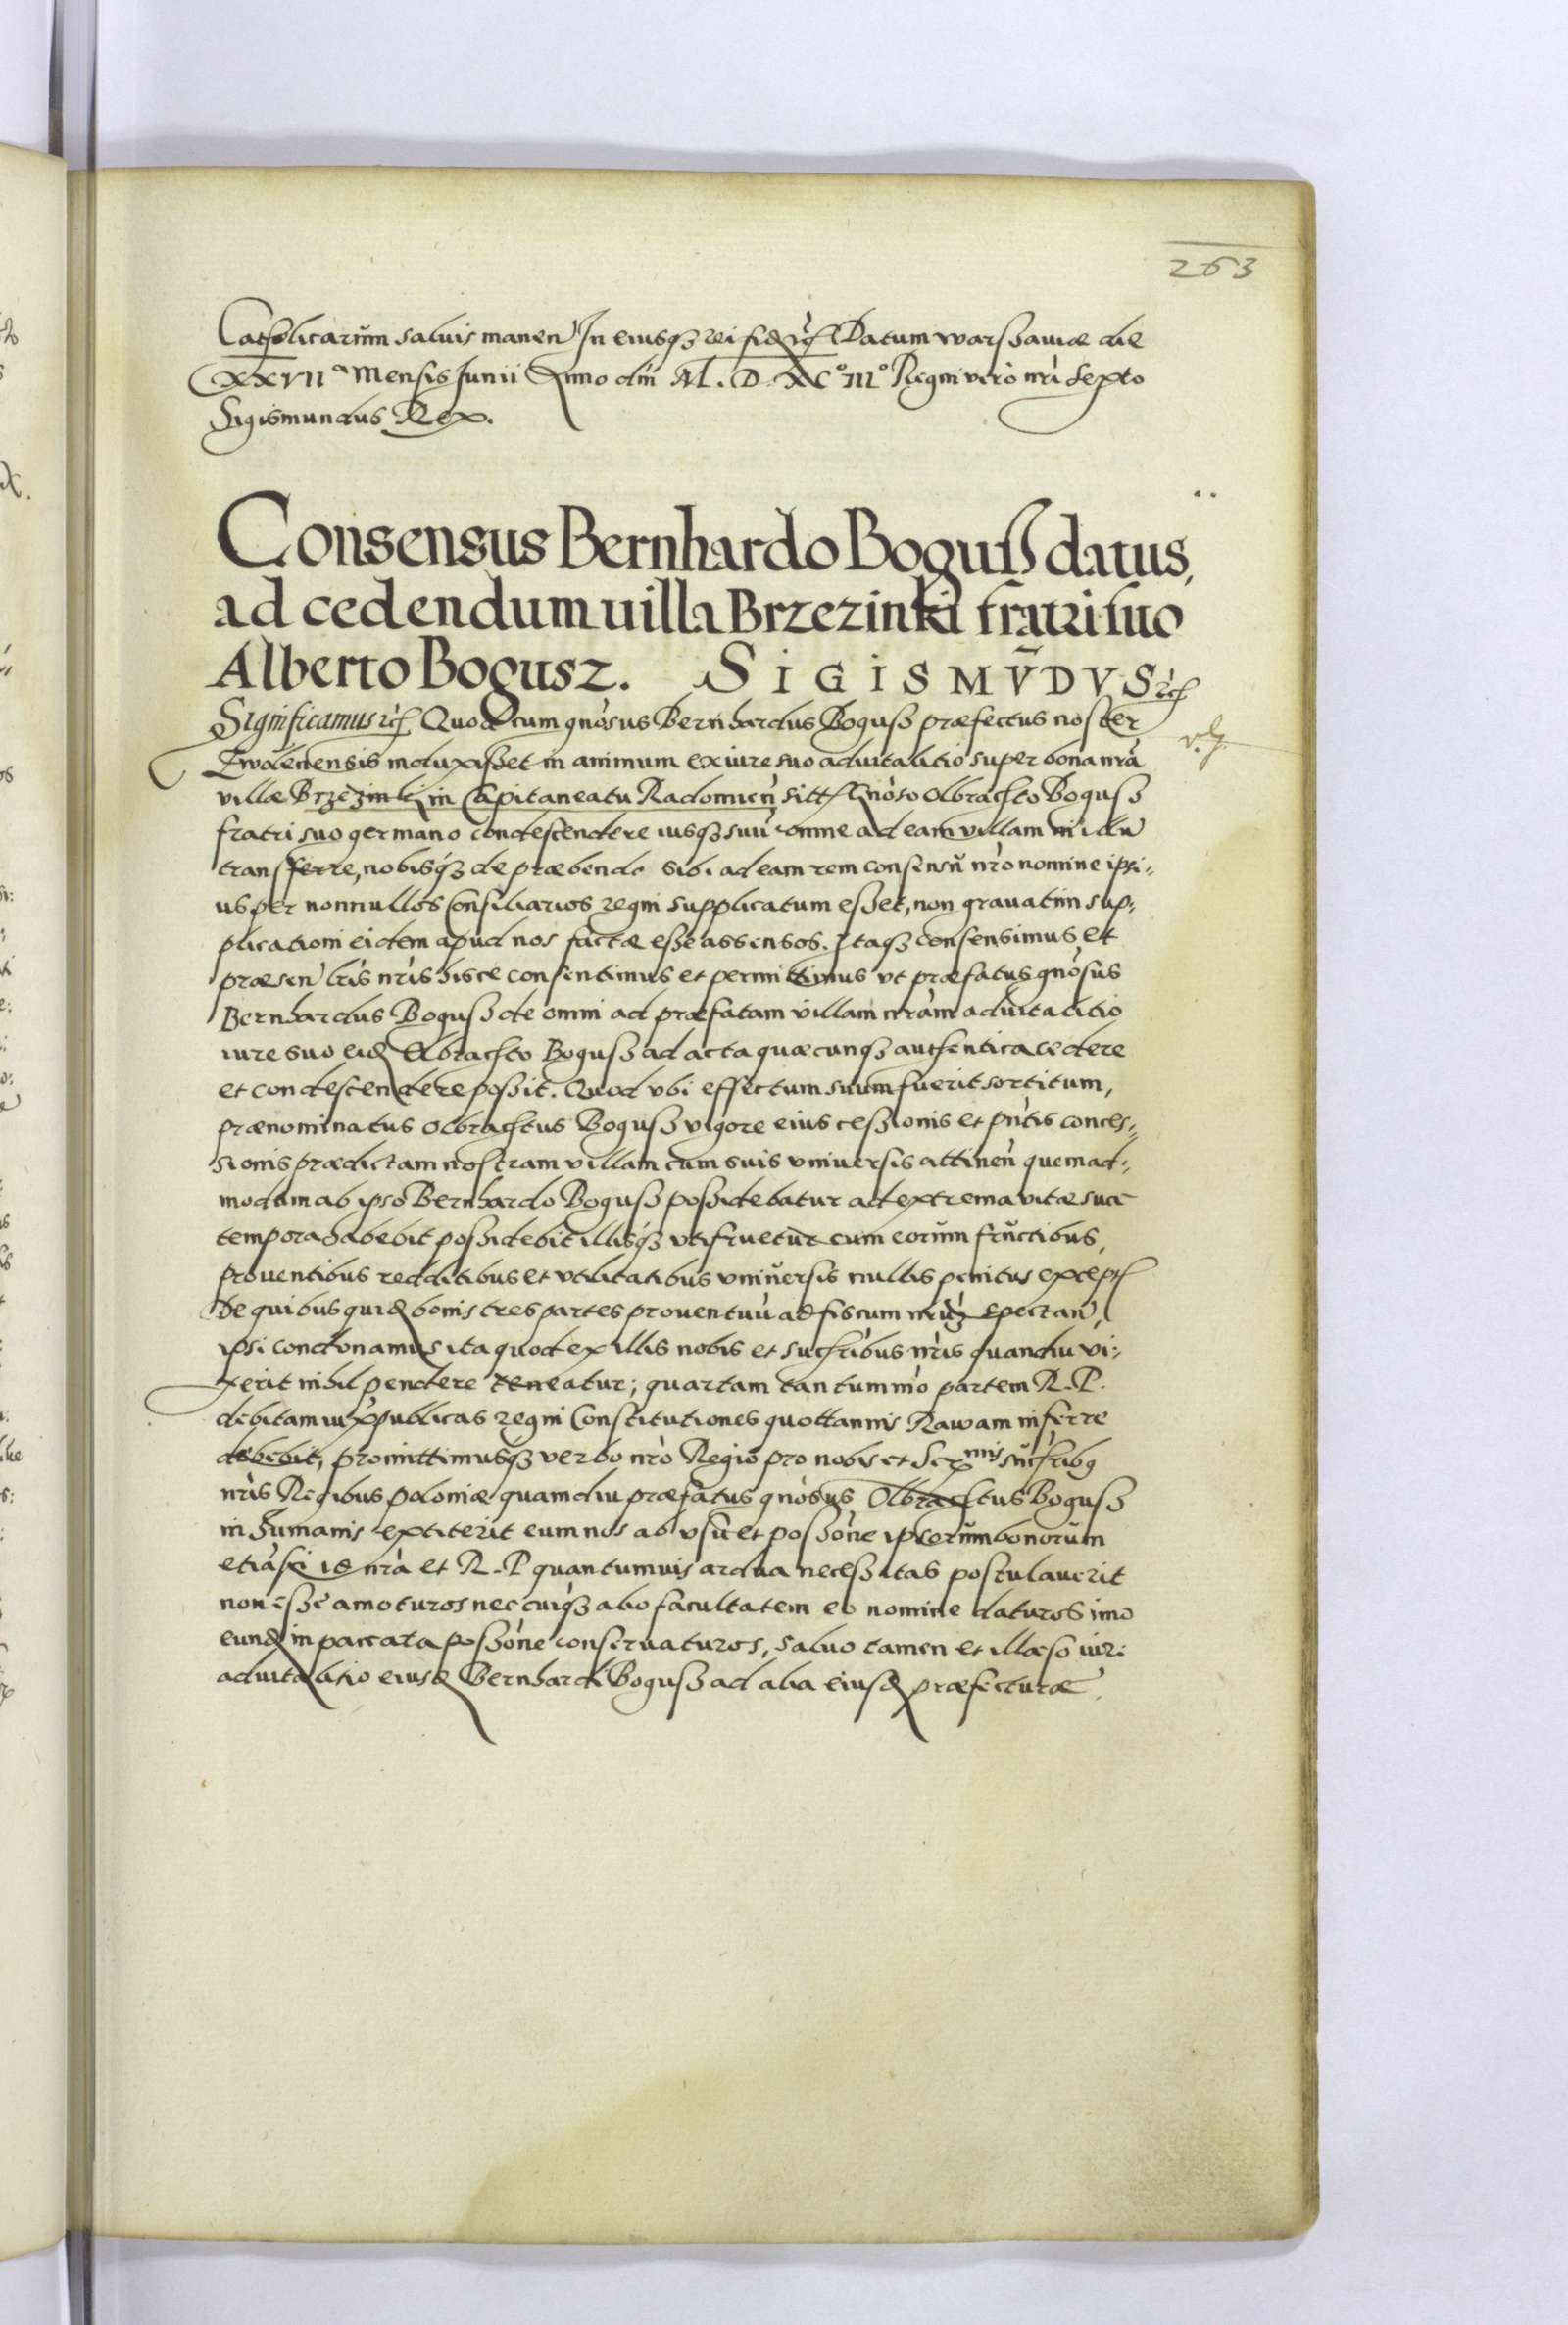 263
Catholicarum salvis manen̄ In eiusqꝫ rei fidē rc̄ Datum Warssaviæ die
XXVIIᵃ Mensis Junii Anno dn̄i M.D.XC°III° Regni vero nr̄i Sexto
Sigismundus Rex.
Consensus Bernhardo Boguss datus,
ad cedendum villa Brzezinki fratri suo
Alberto Bogusz. SIGISMV̄DVS rc̄
Significamus rc̄ Quod cum gnosus Bernhardus Boguss præfectus noster
Zwolenensis induxisset in animum ex iure suo advitalitio super bona nr̄a
villæ Brzezinki in Capitaneatu Radomien̄ sitt Gnoso Olbrachto Boguss
fratri suo germano condescendere iusqꝫ suū omne ad eam villam in idn̄
transferre, nobisqꝫ de præbendo sibi ad eam rem consensū nr̄o nomine ipsi-
us per nonnullos Consiliarios regni supplicatum esset, non gravatim sup-
plicationi eidem apud nos factæ esse assensos. Itaqꝫ consensimus et
præsen̄ lr̄is nr̄is hisce consentimus et permittimus vt præfatus gnosus
Bernhardus Boguss de omni ad præfatam villam nr̄am advitalitio
iure suo eidē Olbrachto Boguss ad acta quæcunqꝫ authentica cedere
et condescendere possit. Quod vbi effectum suum fuerit sortitum,
prænominatus Olbrachtus Boguss vigore eius cessionis et pn̄tis conces-
sionis prædictam nostram villam cum suis vniversis attinen̄ quemad-
modum ab ipso Bernhardo Boguss possidebatur ad extrema vitæ suæ
tempora habebit possidebit illisqꝫ vtifruetur cum eorum fructibus,
proventibus redditibus et vtilitatibus vniversis nullis penitus except
De quibus quidē bonis tres partes proventuū ad fiscum nr̄um spectan̄,
ipsi condonamus ita quod ex illis nobis et succr̄ibus nr̄is quandiu vi-
xerit nihil pendere teneatur; quartam tantummo partem R.P.
debitam iux̄ publicas regni Constitutiones quottannis Rawam inferre
debebit, promittimusqꝫ verbo nr̄o Regio pro nobis et Serᵐⁱˢ succr̄ibꝫ
nr̄is Regibus Poloniæ quamdiu præfatus gnosus Olbrachtus Boguss
in humanis extiterit eum nos ab vsu et poss̄one ipsorum bonorum
etiāsi id nr̄a et R.P quantumvis ardua necessitas postulaverit
non esse amoturos nec cuiqꝫ alio facultatem eo nomine daturos imo
eundē in paccata poss̄one conservaturos, salvo tamen et illæso iure
advitalitio eiusdē Bernhardi Boguss ad alia eiusdē præfecturæ